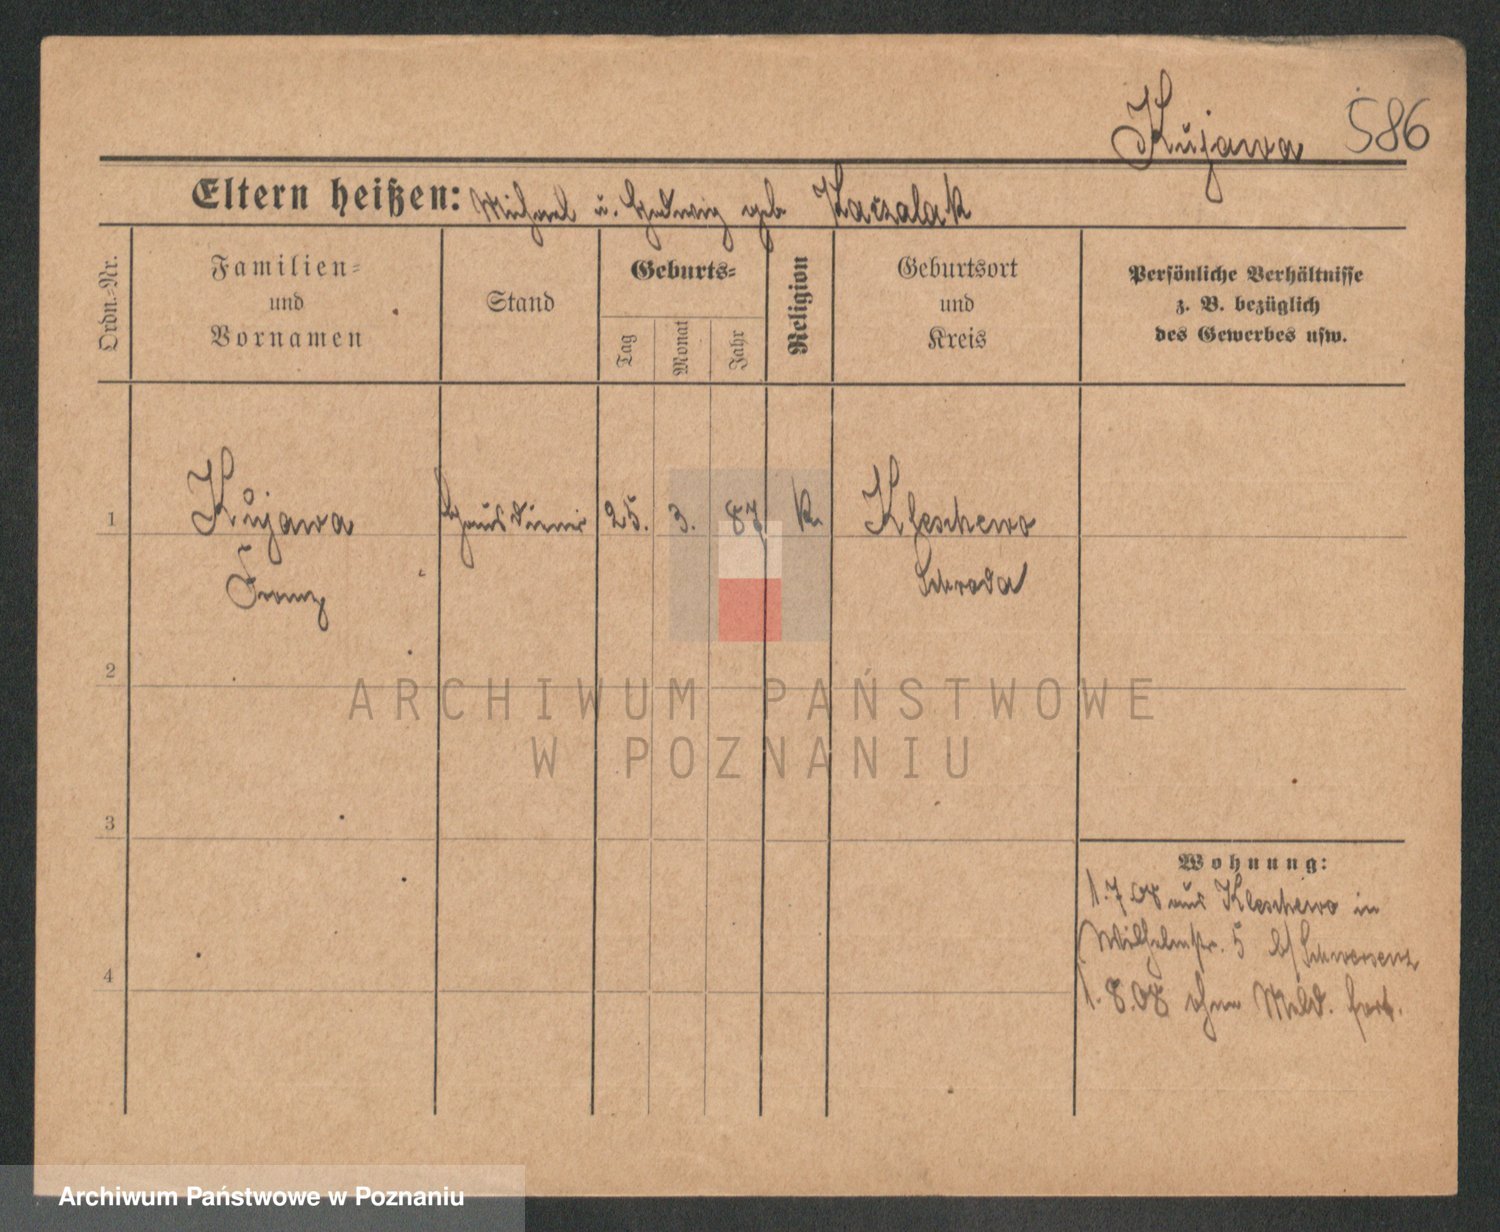 Kujawa 586
Eltern heißen: Michael u. Hedwig geb Kaczalak
Ordn.-Nr.
Familien-
und
Vornamen
Stand
Geburts-
Tag
Monat
Jahr
Religion
Geburtsort
und
Kreis
Persönliche Verhältnisse
z. B. bezüglich
des Gewerbes usw.
1 Kujawa Hausdiener 25. 3. 87 k. Kleschewo
Franz Schroda
2
ARCHIWUM PAŃSTWOWE
W POZNANIU
3
Wohnung:
1.7 08 aus Kleschewo in
Wilhelmstr. 5 b/ Schwersenz
4
1. 8.08 ohne Meld. fort.
Archiwum Państwowe w Poznaniu